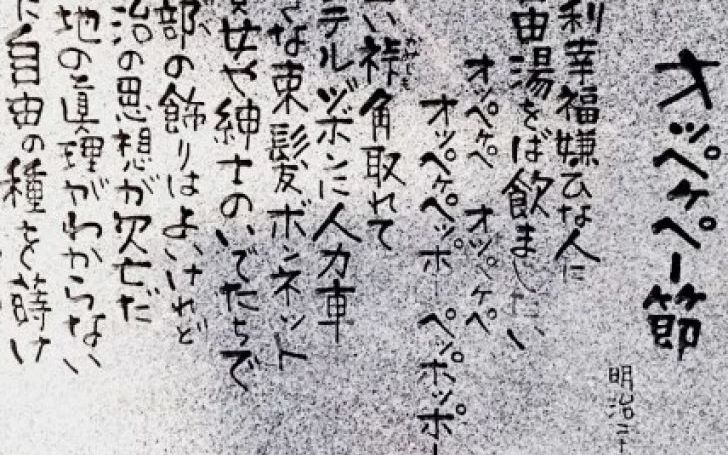 オッペケペー節
明治二十
利幸福嫌ひな人に
由湯をば飲ましたい
オッペケペ オッペケペ
オッペケペッポー ペッポッポー
い裃角取れて
テルヅボンに人力車
きな束髪ボンネット
女や紳士のいでたちで
部の飾りはよいけれど
治の思想が欠亡だ
地の真理がわからない
に自由の種を蒔け